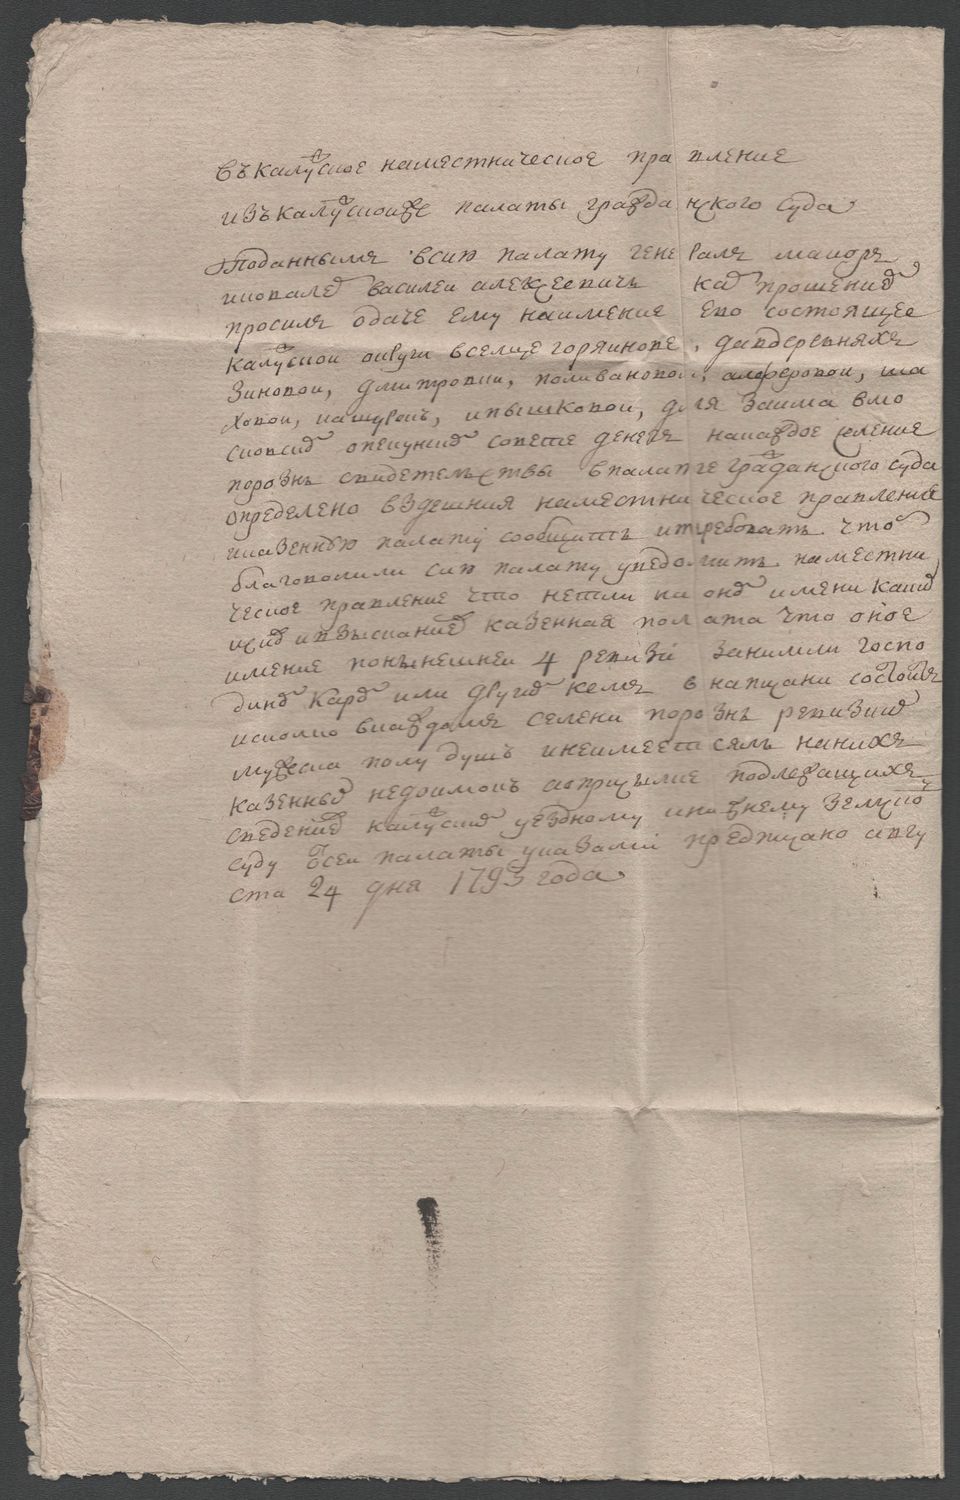 въ калуское наместническое правление
изъ калуской палаты гражданского суда
Поданнымъ всию палату генералъ маиоръ
василеи алексеевичь прошение
просилъ одаче ему наимение ево состоящее
калуской округи вселце горяинове, давдеревняхъ
зиновои, дмитровки, поливановои, алферовои, ша
ховои, ипышковои, для заима вмо
сковско опекунско совете денегъ накаждое селение
порознь свидетелствы впалатге гражданского суда
определено вздешния наместническое правление
иказенную палату сообщить итребовать что
благоволили сию палату уведомить наместни
ческое правление что нетли на оно имени каких
исков ивзыскание казенная полата что оное
имение понынешнеи 4 ревизи заними госпо
дино или другим кемъ внаписани состоитъ
исколко вкаждомъ селени порознь ревизии
мужеска полу душъ инеимеетсяль нанихъ
казенной недоимокъ подлежащихъ
сведение калуском уездному инижнему земско
суду отсеи палаты указами предписано авгу
ста 24 дня 1795 года